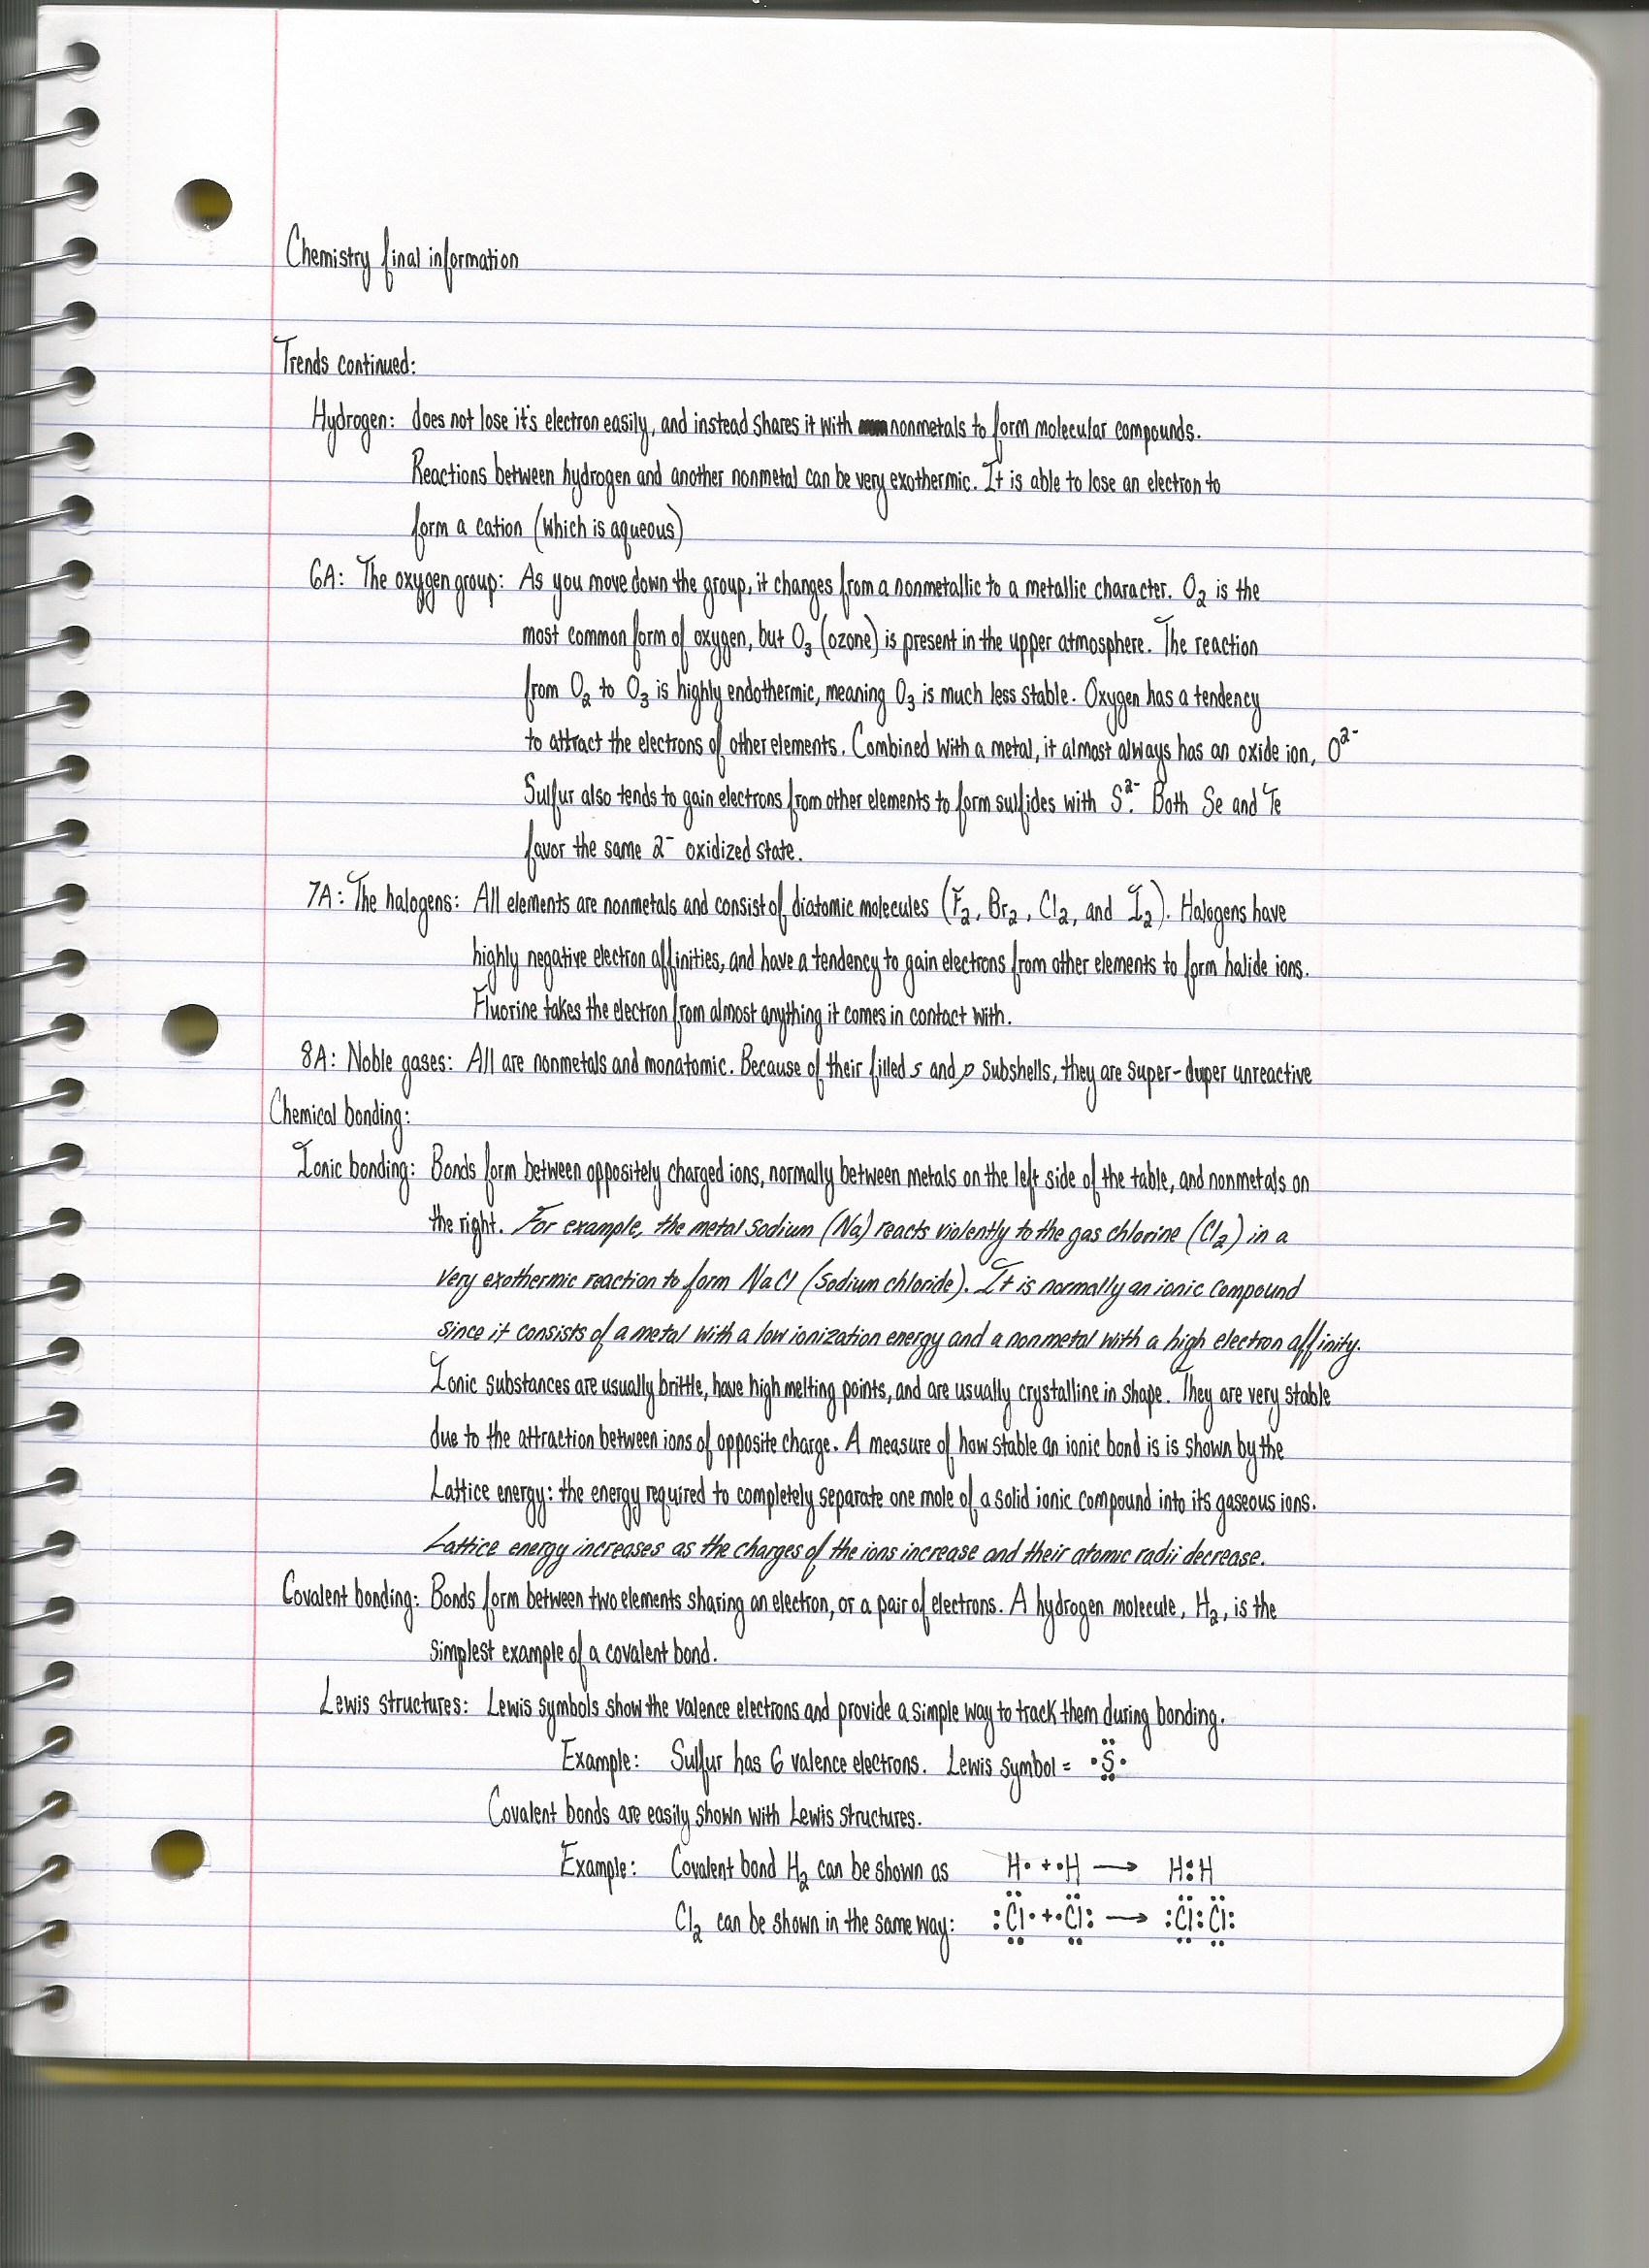 Chemistry final information
Trends continued:
Hydrogen: does not lose it's electron easily, and instead shares it with nonmetals to form molecular compounds.
Reactions between hydrogen and another nonmetal can be very exothermic. It is able to lose an electron to
form a cation (which is aqueous)
6A: The oxygen group: As you move down the group, it changes from a nonmetallic to a metallic character. O₂ is the
most common form of oxygen, but O₃ (ozone) is present in the upper atmosphere. The reaction
from O₂ to O₃ is highly endothermic, meaning O₃ is much less stable. Oxygen has a tendency
to attract the electrons of other elements. Combined with a metal, it almost always has an oxide ion, O²⁻
Sulfur also tends to gain electrons from other elements to form sulfides with S²⁻. Both Se and Te
favor the same 2⁻ oxidized state.
7A: The halogens: All elements are nonmetals and consist of diatomic molecules (F₂, Br₂, Cl₂, and I₂). Halogens have
highly negative electron affinities, and have a tendency to gain electrons from other elements to form halide ions.
Fluorine takes the electron from almost anything it comes in contact with.
8A: Noble gases: All are nonmetals and monatomic. Because of their filled s and p subshells, they are super-duper unreactive
Chemical bonding:
Ionic bonding: Bonds form between oppositely charged ions, normally between metals on the left side of the table, and nonmetals on
the right. For example, the metal sodium (Na) reacts violently to the gas chlorine (Cl₂) in a
very exothermic reaction to form NaCl (sodium chloride). It is normally an ionic compound
since it consists of a metal with a low ionization energy and a nonmetal with a high electron affinity.
Ionic substances are usually brittle, have high melting points, and are usually crystalline in shape. They are very stable
due to the attraction between ions of opposite charge. A measure of how stable an ionic bond is is shown by the
Lattice energy: the energy required to completely separate one mole of a solid ionic compound into its gaseous ions.
Lattice energy increases as the charges of the ions increase and their atomic radii decrease.
Covalent bonding: Bonds form between two elements sharing an electron, or a pair of electrons. A hydrogen molecule, H₂, is the
simplest example of a covalent bond.
Lewis structures: Lewis symbols show the valence electrons and provide a simple way to track them during bonding.
Example: Sulfur has 6 valence electrons. Lewis symbol = ·S̤̈·
Covalent bonds are easily shown with Lewis structures.
Example: Covalent bond H₂ can be shown as H· + ·H → H:H
Cl₂ can be shown in the same way: :C̤̈l· + ·C̤̈l: → :C̤̈l:C̤̈l: